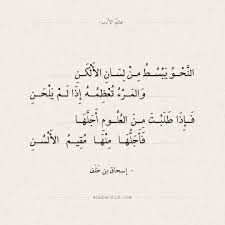 - عالم الأدب -
النَّحْوُ يَبْسُطُ مِنْ لِسَانِ الأَلْكَنِ
وَالمَرْءُ تُعْظِمُهُ إِذَا لَمْ يَلْحَنِ
فَإِذَا طَلَبْتَ مِنَ العُلُومِ أَجَلَّهَا
فَأَجَلُّهَا مِنْهَا مُقِيمُ الأَلْسُنِ
- إسحاق بن خلف
adabworld.com